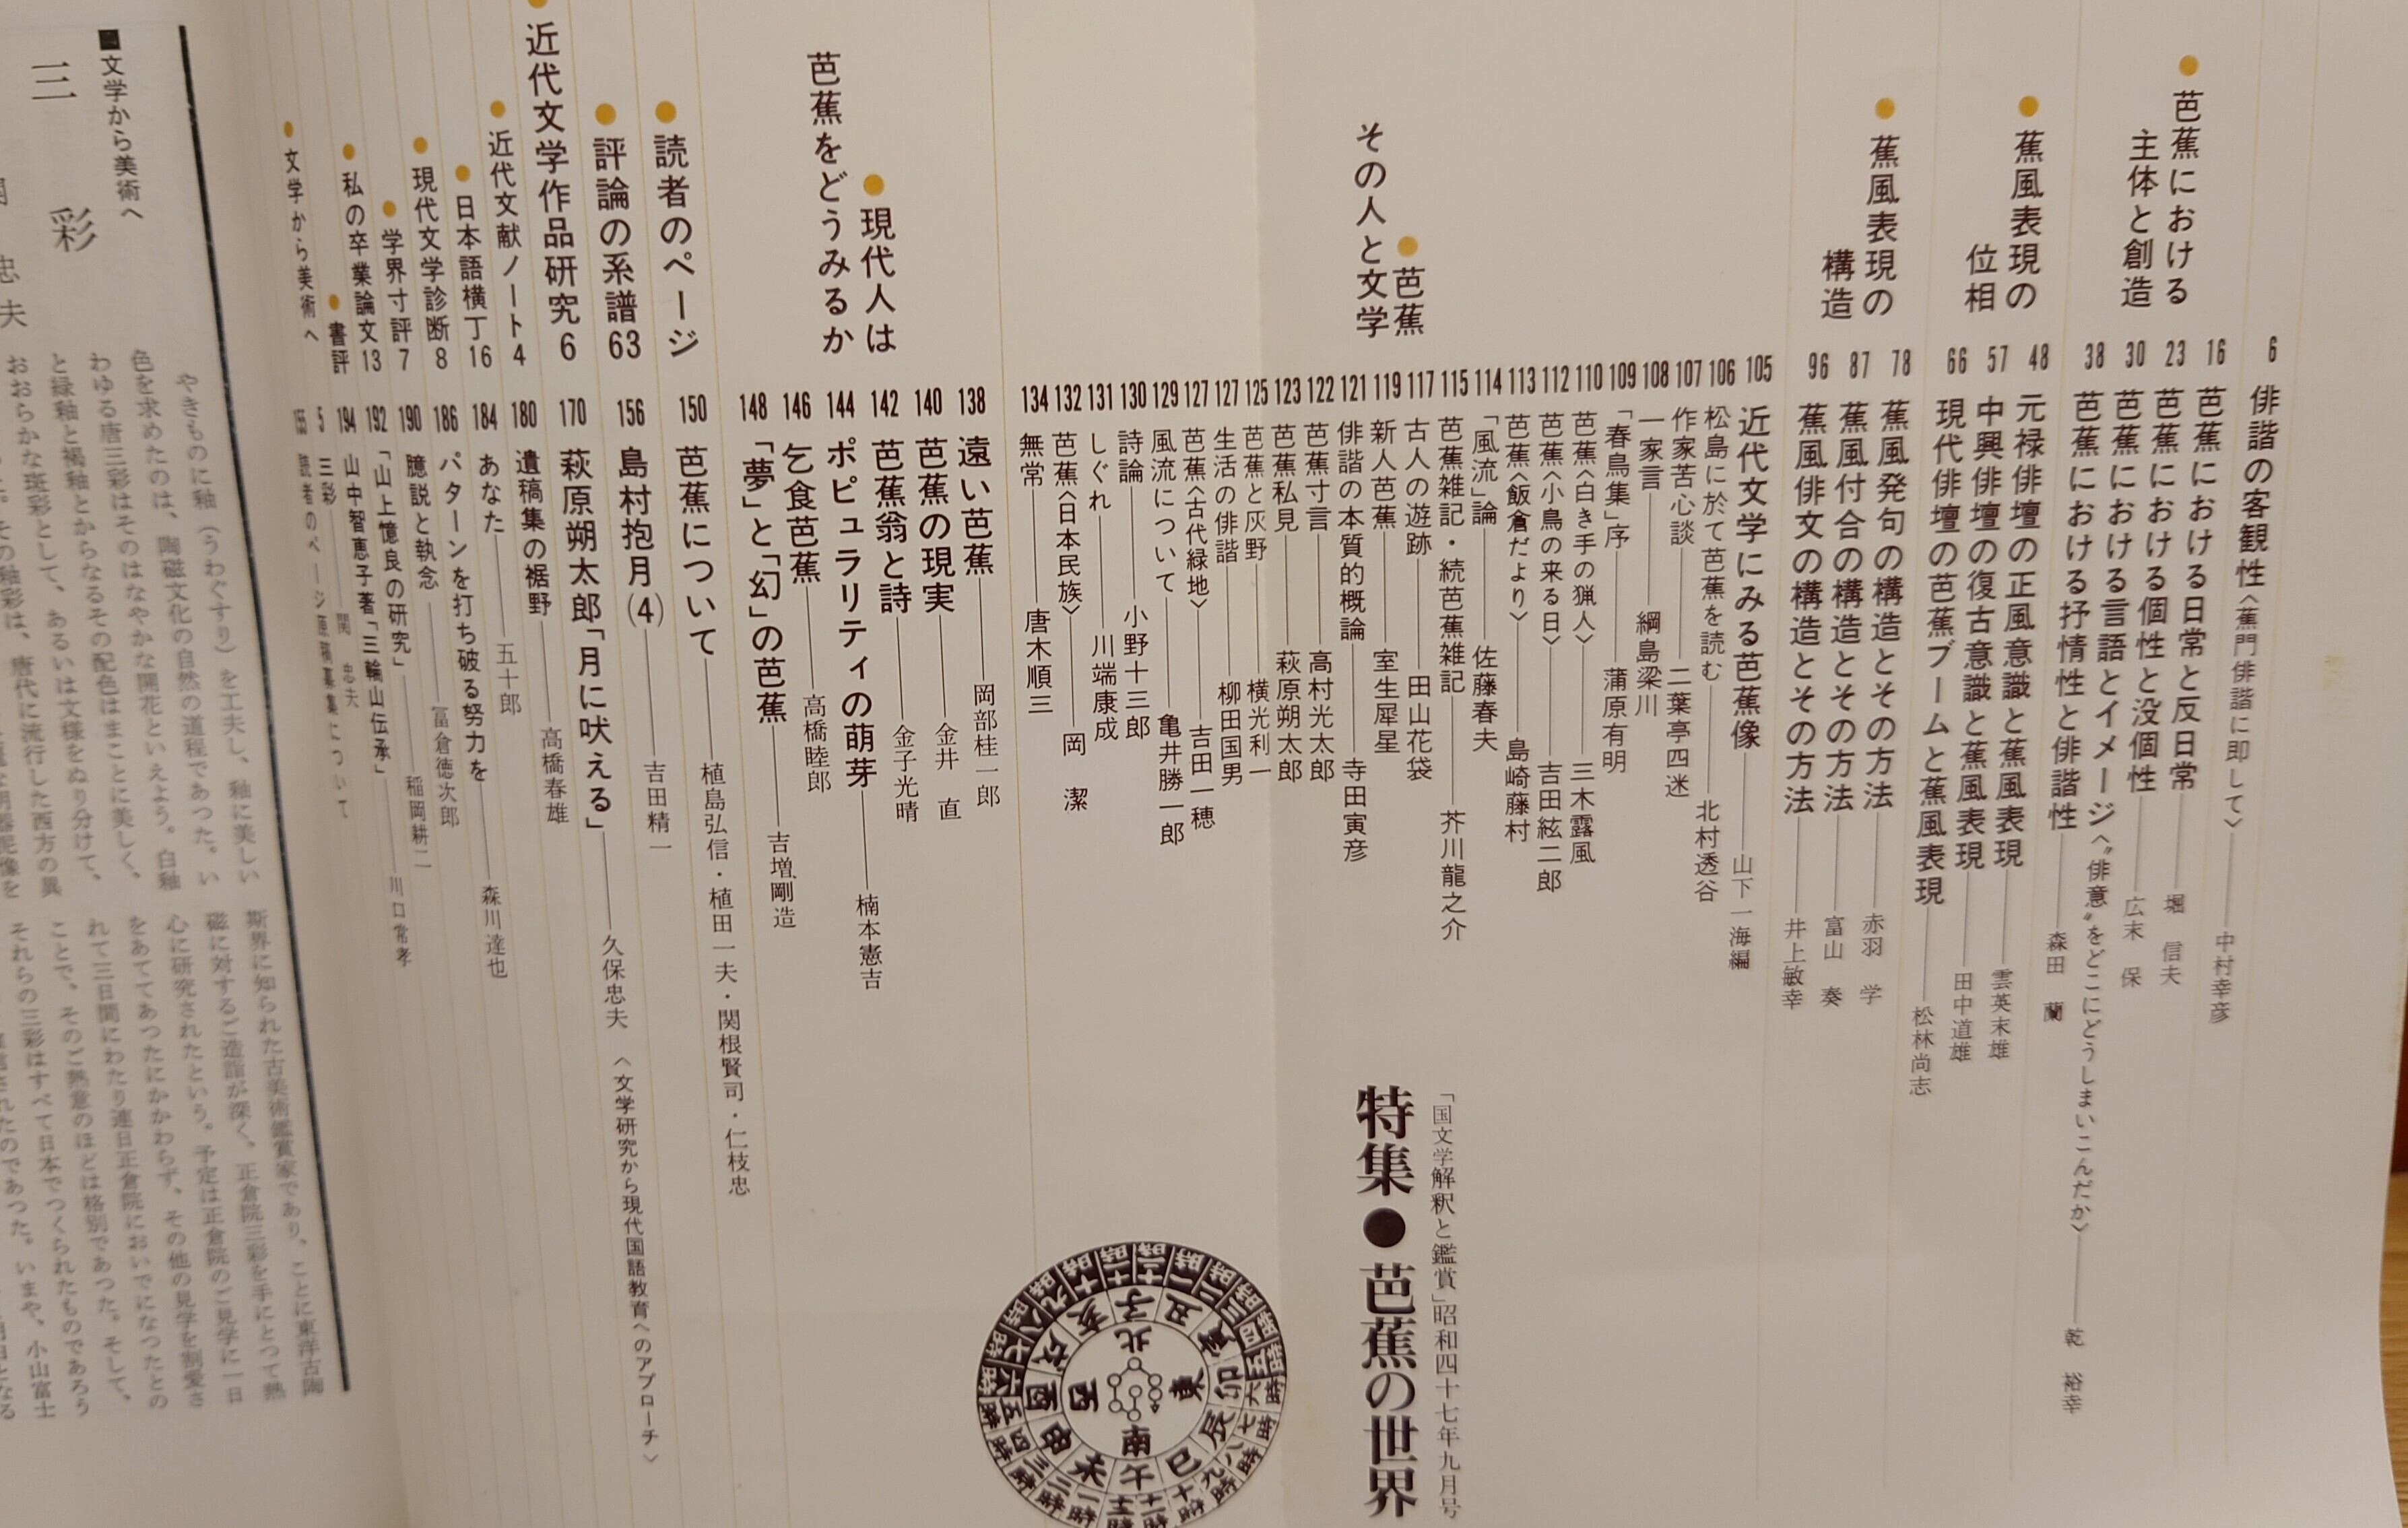 6 俳諧の客観性〈蕉門俳諧に即して〉――中村幸彦
●芭蕉における
主体と創造
16 芭蕉における日常と反日常――堀 信夫
23 芭蕉における個性と没個性――広末 保
30 芭蕉における言語とイメージ〈〝俳意〟をどこにどうしまいこんだか〉――乾 裕幸
38 芭蕉における抒情性と俳諧性――森田 蘭
●蕉風表現の
位相
48 元禄俳壇の正風意識と蕉風表現――雲英末雄
57 中興俳壇の復古意識と蕉風表現――田中道雄
66 現代俳壇の芭蕉ブームと蕉風表現――松林尚志
●蕉風表現の
構造
78 蕉風発句の構造とその方法――赤羽 学
87 蕉風付合の構造とその方法――富山 奏
96 蕉風俳文の構造とその方法――井上敏幸
●芭蕉
その人と文学
105 近代文学にみる芭蕉像――山下一海編
106 松島に於て芭蕉を読む――北村透谷
107 作家苦心談――二葉亭四迷
108 一家言――綱島梁川
109 「春鳥集」序――蒲原有明
110 芭蕉〈白き手の猟人〉――三木露風
112 芭蕉〈小鳥の来る日〉――吉田絃二郎
113 芭蕉〈飯倉だより〉――島崎藤村
114 「風流」論――佐藤春夫
115 芭蕉雑記・続芭蕉雑記――芥川龍之介
117 古人の遊跡――田山花袋
119 新人芭蕉――室生犀星
121 俳諧の本質的概論――寺田寅彦
122 芭蕉寸言――高村光太郎
123 芭蕉私見――萩原朔太郎
125 芭蕉と灰野――横光利一
127 生活の俳諧――柳田国男
127 芭蕉〈古代緑地〉――吉田一穂
129 風流について――亀井勝一郎
130 詩論――小野十三郎
131 しぐれ――川端康成
132 芭蕉〈日本民族〉――岡 潔
134 無常――唐木順三
●現代人は
芭蕉をどうみるか
138 遠い芭蕉――岡部桂一郎
140 芭蕉の現実――金井 直
142 芭蕉翁と詩――金子光晴
144 ポピュラリティの萌芽――楠本憲吉
146 乞食芭蕉――高橋睦郎
148 「夢」と「幻」の芭蕉――吉増剛造
●読者のページ
150 芭蕉について――植島弘信・植田一夫・関根賢司・仁枝忠
●評論の系譜63
156 島村抱月(4)――吉田精一
●近代文学作品研究6
170 萩原朔太郎「月に吠える」――久保忠夫 〈文学研究から現代国語教育へのアプローチ〉
●近代文献ノート4
180 遺稿集の裾野――高橋春雄
●日本語横丁16
184 あなた――五十郎
●現代文学診断8
186 パターンを打ち破る努力を――森川達也
●学界寸評7
190 臆説と執念――冨倉徳次郎
●私の卒業論文13
192 「山上憶良の研究」――稲岡耕二
●書評
194 山中智恵子著「三輪山伝承」――川口常孝
●文学から美術へ
5 三彩――関 忠夫
155 読者のページ原稿募集について
「国文学解釈と鑑賞」昭和四十七年九月号
特集●芭蕉の世界
北
東
南
西
子
丑
寅
卯
辰
巳
午
未
申
酉
戌
亥
■文学から美術へ
三彩
忠夫
やきものに釉（うわぐすり）を工夫し、釉に美しい
色を求めたのは、陶磁文化の自然の道程であつた。い
わゆる唐三彩はそのはなやかな開花といえよう。白釉
と緑釉と褐釉とからなるその配色はまことに美しく、
おおらかな斑彩として、あるいは文様をぬり分けて、
その釉彩は、唐代に流行した西方の異
斯界に知られた古美術鑑賞家であり、ことに東洋古陶
磁に対するご造詣が深く、正倉院三彩を手にとつて熱
心に研究されたという。予定は正倉院のご見学に一日
をあててあつたにかかわらず、その他の見学を割愛さ
れて三日間にわたり連日正倉院においでになつたとの
ことで、そのご熱意のほどは格別であつた。そして、
それらの三彩はすべて日本でつくられたものであろう
のであつた。いまや、小山富士